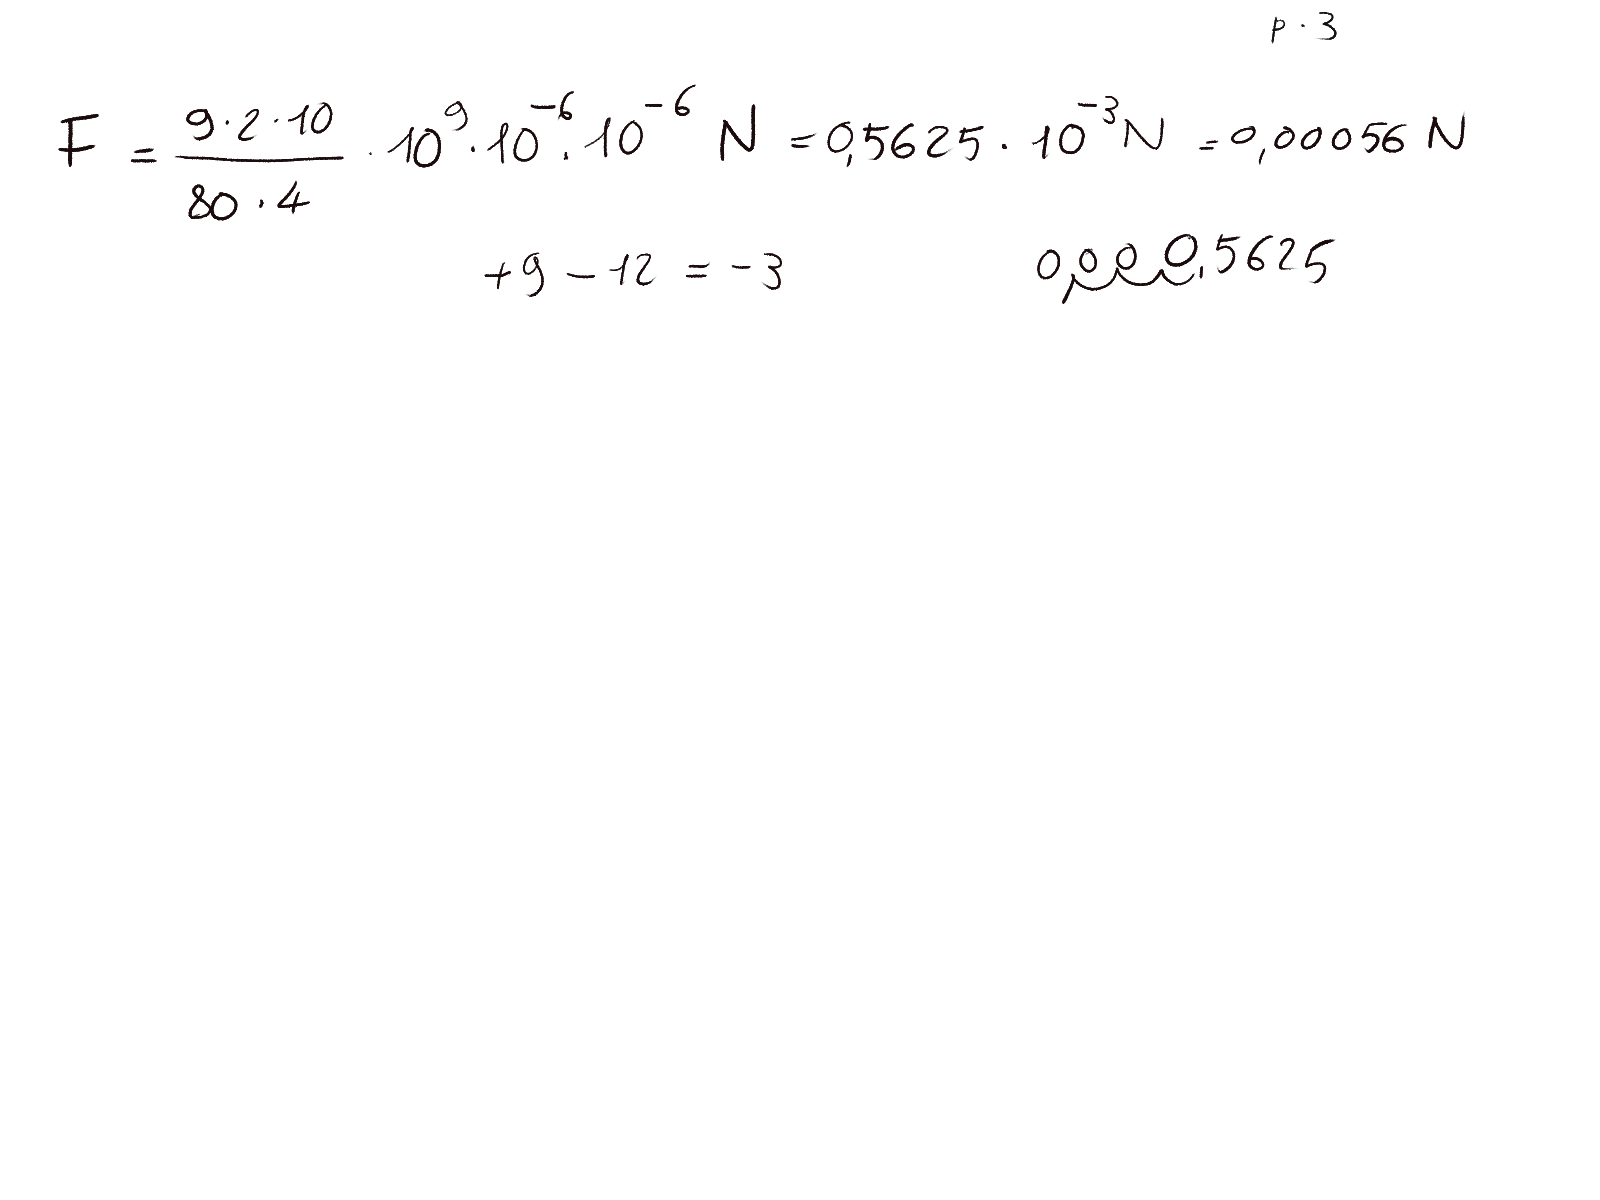 p. 3
F = 9·2·10 / 80·4 · 10⁹ · 10⁻⁶ · 10⁻⁶ N = 0,5625 · 10⁻³ N = 0,00056 N
+9 − 12 = −3 0,000,5625